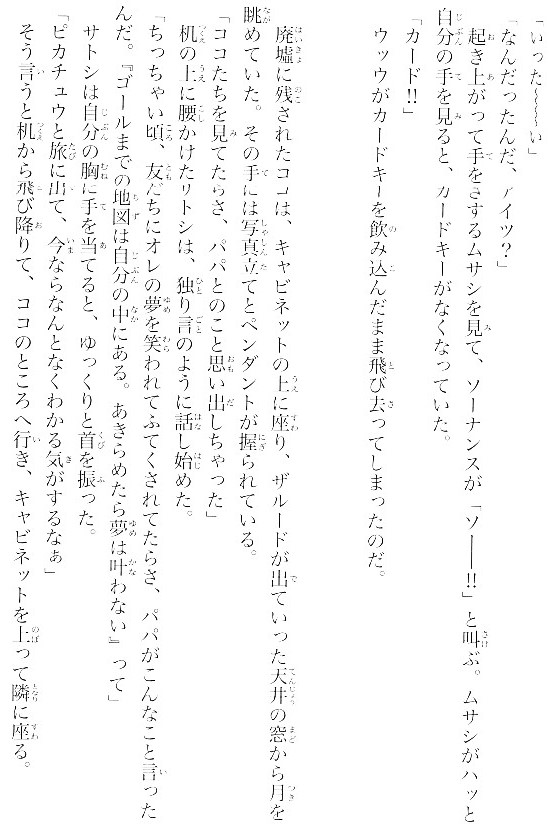 「いった〜〜〜〜い」
「なんだったんだ、アイツ？」
起き上がって手をさするムサシを見て、ソーナンスが「ソーーー!!」と叫ぶ。ムサシがハッと
自分の手を見ると、カードキーがなくなっていた。
「カード!!」
ウッウがカードキーを飲み込んだまま飛び去ってしまったのだ。
廃墟に残されたココは、キャビネットの上に座り、ザルードが出ていった天井の窓から月を
眺めていた。その手には写真立てとペンダントが握られている。
「ココたちを見てたらさ、パパとのこと思い出しちゃった」
机の上に腰かけたサトシは、独り言のように話し始めた。
「ちっちゃい頃、友だちにオレの夢を笑われてふてくされてたらさ、パパがこんなこと言った
んだ。『ゴールまでの地図は自分の中にある。あきらめたら夢は叶わない』って」
サトシは自分の胸に手を当てると、ゆっくりと首を振った。
「ピカチュウと旅に出て、今ならなんとなくわかる気がするなぁ」
そう言うと机から飛び降りて、ココのところへ行き、キャビネットを上って隣に座る。